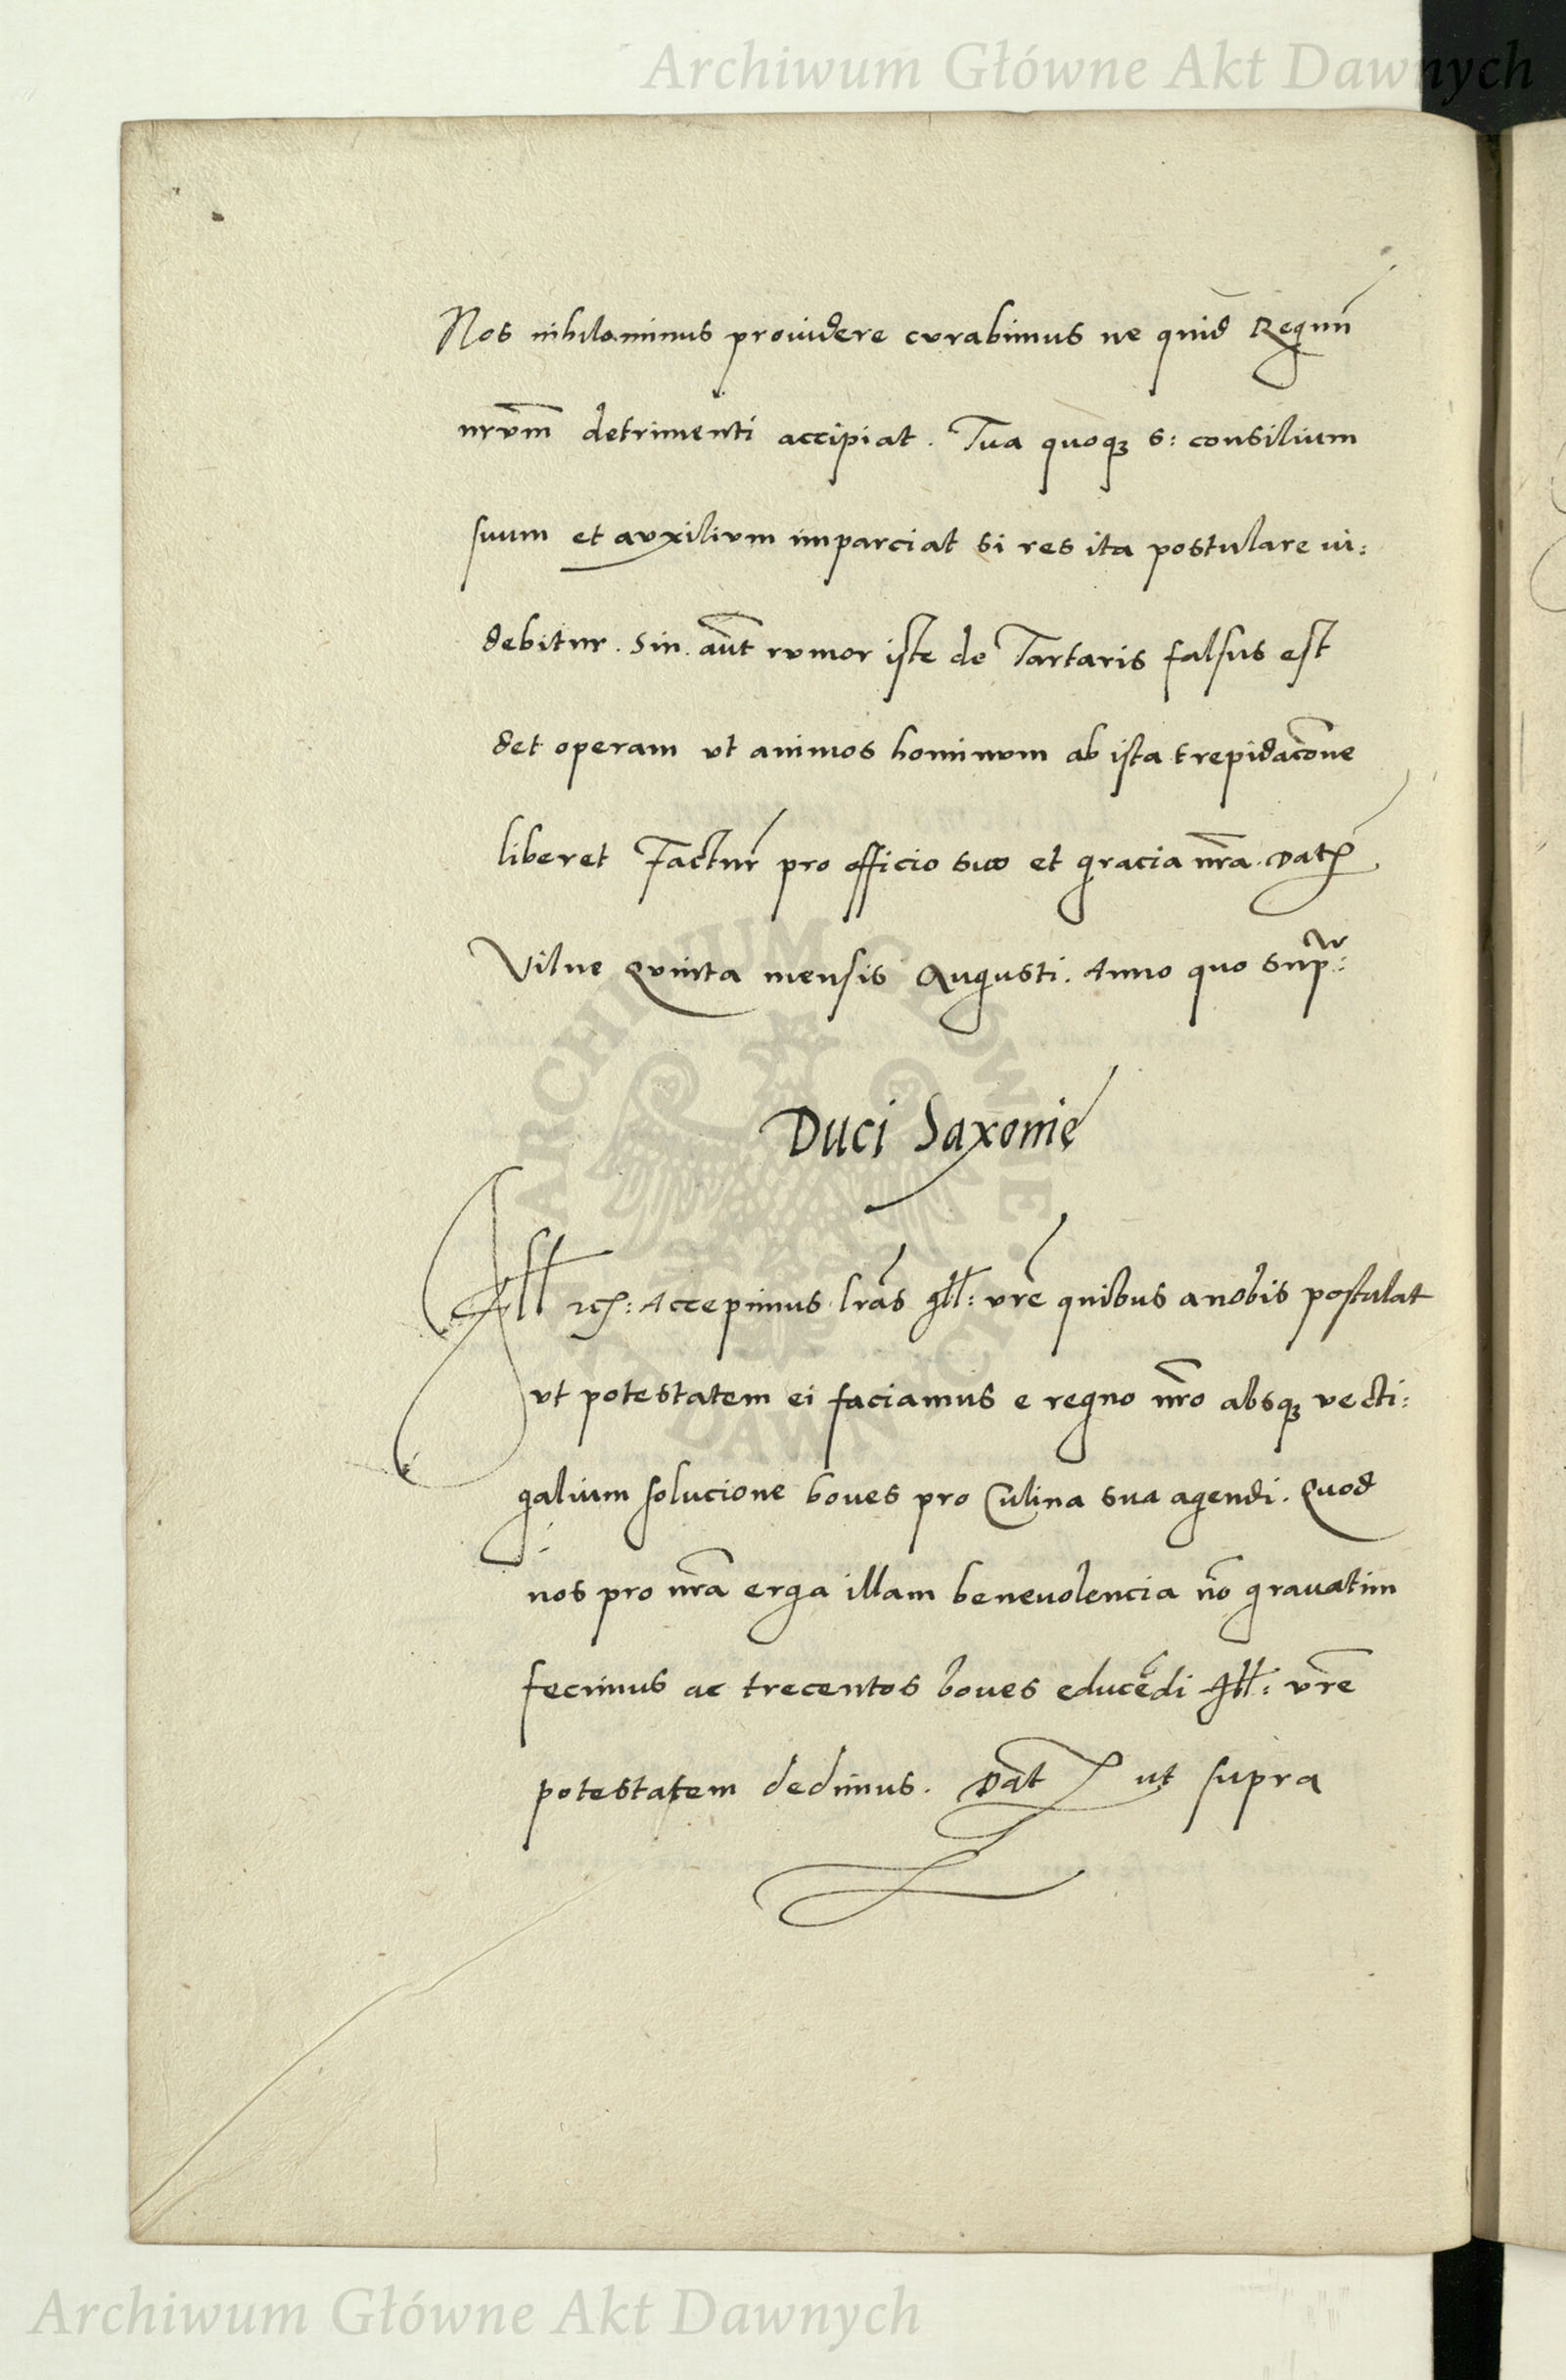 Archiwum Główne Akt Dawnych
Nos nihilominus prouidere curabimus ne quid Regnū
nrum̄ detrimenti accipiat. Tua quoqȝ s: consilium
suum et auxilium imparciat si res ita postulare ui:
debitur. Sin. aūt rumor iste de Tartaris falsus est
det operam ut animos hominum ab ista trepidac̄one
liberet Factur̄ pro officio suo et gracia nr̄a. Dat̄
Vilne Quinta mensis Augusti. Anno quo sup:
Duci Saxonie
Ill rc: Accepimus lrās Ill: vrē quibus a nobis postulat
ut potestatem ei faciamus e regno nr̄o absqȝ vecti:
galium solucione boues pro Culina sua agendi. Quod
nos pro nr̄a erga illam beneuolencia nō grauatim
fecimus ac trecentos boues educēdi Ill: vr̄e
potestatem dedimus. Dat̄ ut supra
ARCHIWUM GŁÓWNE AKT DAWNYCH
Archiwum Główne Akt Dawnych